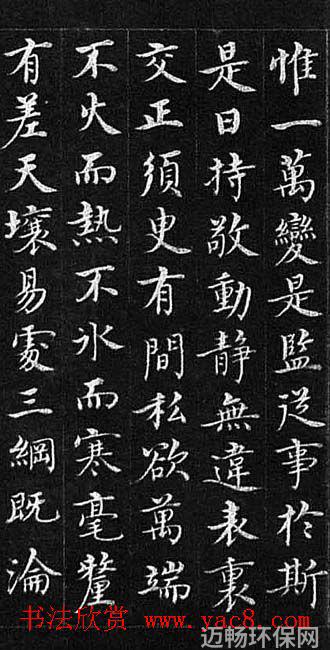 惟一萬變是監從事於斯
是曰持敬動静無違表裏
交正須臾有間私欲萬端
不火而熱不氷而寒毫釐
有差天壤易處三綱既淪
书法欣赏 www.yac8.com
迈畅环保网